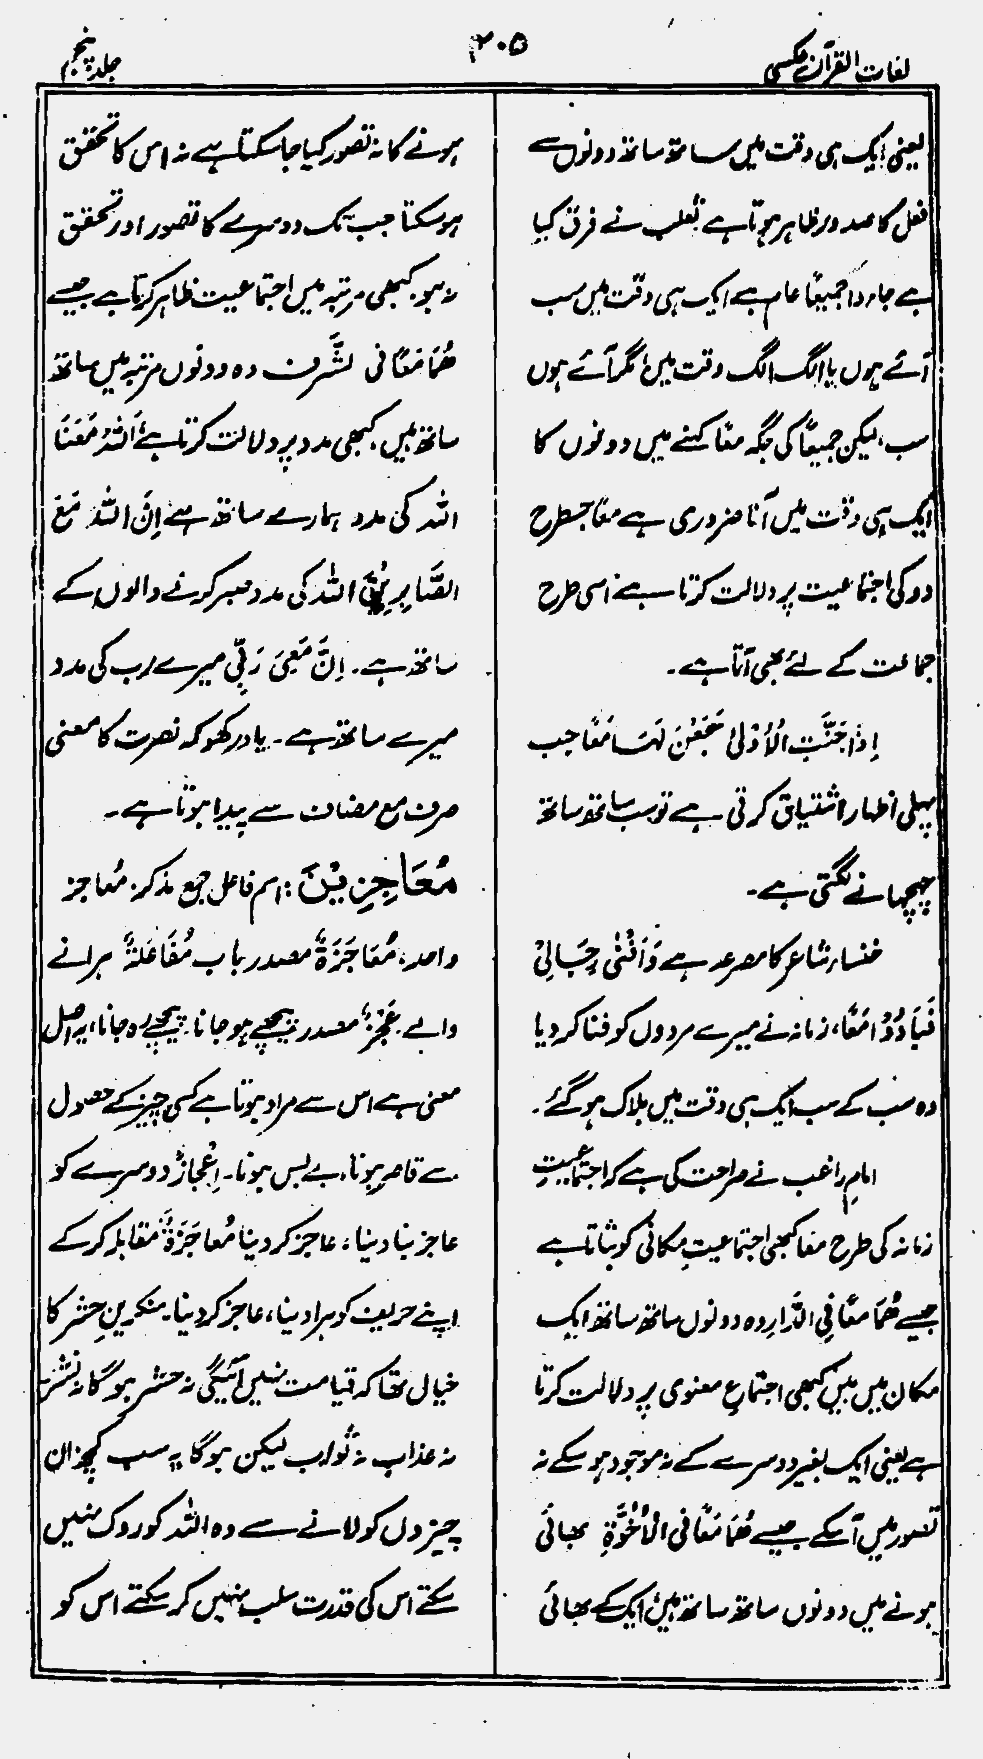 لغات القرآن عکسی
۲۰۵
جلد پنجم
یعنی ایک ہی وقت میں ساتھ ساتھ دونوں سے
فعل کا صدور ظاہر ہوتا ہے ثعلب نے فرق کیا
ہے جاءوا جمیعًا عام ہے ایک ہی وقت میں سب
آئے ہوں یا الگ الگ وقت میں مگر آئے ہوں
سب، لیکن جمیعًا کی جگہ معًا کہنے میں دونوں کا
ایک ہی وقت میں آنا ضروری ہے معًا جسطرح
دو کی اجتماعیت پر دلالت کرتا ہے اسی طرح
جماعت کے لئے بھی آتا ہے۔
اِذَا حَنَّتِ الْاُوْلٰی سَجَعْنَ لَہَا مَعًا جب
پہلی اظہار اشتیاق کرتی ہے تو سب ساتھ ساتھ
چہچہانے لگتی ہے۔
خنساء شاعر کا مصرعہ ہے وَاَفْنٰی رِجَالِیْ
فَبَادُوْا مَعًا، زمانہ نے میرے مردوں کو فنا کردیا
وہ سب کے سب ایک ہی وقت میں ہلاک ہوگئے۔
امام راغب نے صراحت کی ہے کہ اجتماعیتِ
زمانہ کی طرح معًا کبھی اجتماعیتِ مکانی کو بتاتا ہے
جیسے ھُمَا مَعًا فِی الدَّارِ وہ دونوں ساتھ ساتھ ایک
مکان میں ہیں کبھی اجتماعِ معنوی پر دلالت کرتا
ہے یعنی ایک بغیر دوسرے کے نہ موجود ہو سکے نہ
تصور میں آسکے جیسے ھُمَا مَعًا فی الْاُخُوَّۃِ بھائی
ہونے میں دونوں ساتھ ساتھ ہیں ایک کے بھائی
ہونے کا نہ تصور کیا جا سکتا ہے نہ اس کا تحقق
ہو سکتا جب تک دوسرے کا تصور اور تحقق
نہ ہو۔ کبھی مرتبہ میں اجتماعیت ظاہر کرتا ہے جیسے
ھُمَا مَعًا فی الشَّرَف وہ دونوں مرتبہ میں ساتھ
ساتھ ہیں، کبھی مدد پر دلالت کرتا ہے اَللّٰہُ مَعَنَا
اللہ کی مدد ہمارے ساتھ ہے اِنَّ اللّٰہَ مَعَ
الصَّابِرِیْنَ اللہ کی مدد صبر کرنے والوں کے
ساتھ ہے۔ اِنَّ مَعِیَ رَبِّیْ میرے رب کی مدد
میرے ساتھ ہے۔ یاد رکھو کہ نصرت کا معنی
صرف مع مضاف سے پیدا ہوتا ہے۔
مُعَاجِزِیْنَ: اسم فاعل جمع مذکر۔ مُعاجز
واحد، مُعَاجَزَۃٌ مصدر باب مُفَاعَلَۃٌ ہرانے
والے۔ عَجْزٌ مصدر پیچھے ہو جانا۔ پیچھے رہ جانا، یہ اصل
معنی ہے اس سے مراد ہوتا ہے کسی چیز کے حصول
سے قاصر ہونا، بے بس ہونا۔ اِعْجازٌ دوسرے کو
عاجز بنا دینا، عاجز کر دینا مُعاجَزَۃٌ مقابلہ کرکے
اپنے حریف کو ہرا دینا، عاجز کر دینا۔ منکرینِ حشر کا
خیال تھا کہ قیامت نہیں آئیگی نہ حشر ہوگا نہ نشر
نہ عذاب نہ ثواب لیکن ہوگا یہ سب کچھ ان
چیزوں کو لانے سے وہ اللہ کو روک نہیں
سکتے اس کی قدرت سلب نہیں کر سکتے اس کو